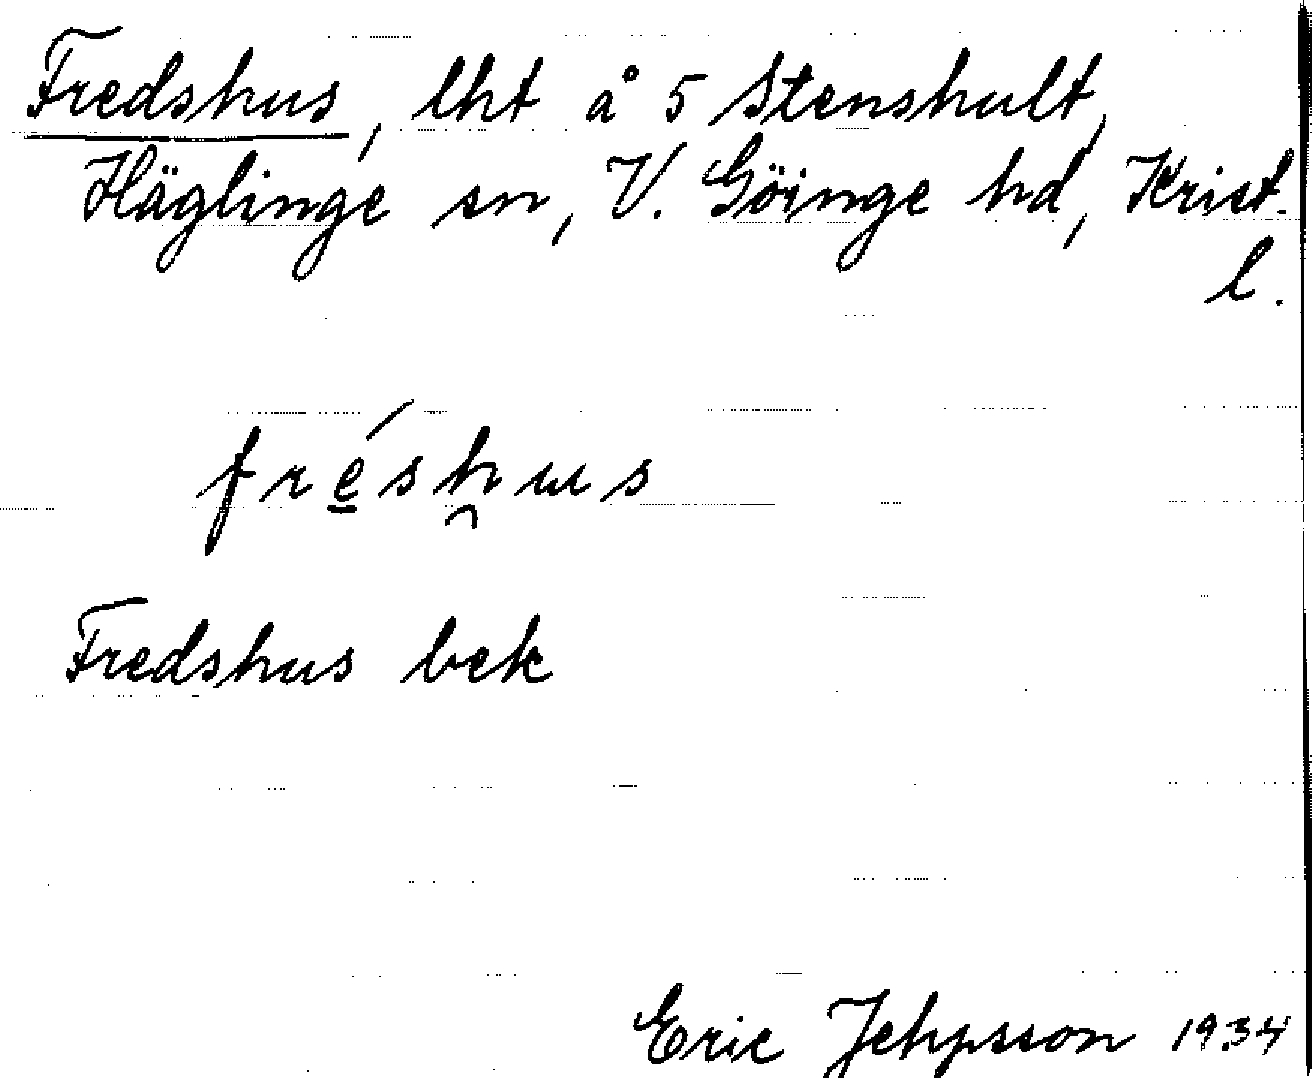 Fredshus, lht å 5 Stenshult,
Häglinge sn, V. Göinge hd, Krist.
l.
fré̲sh̯us
Fredshus bek
Eric Jehpsson 1934